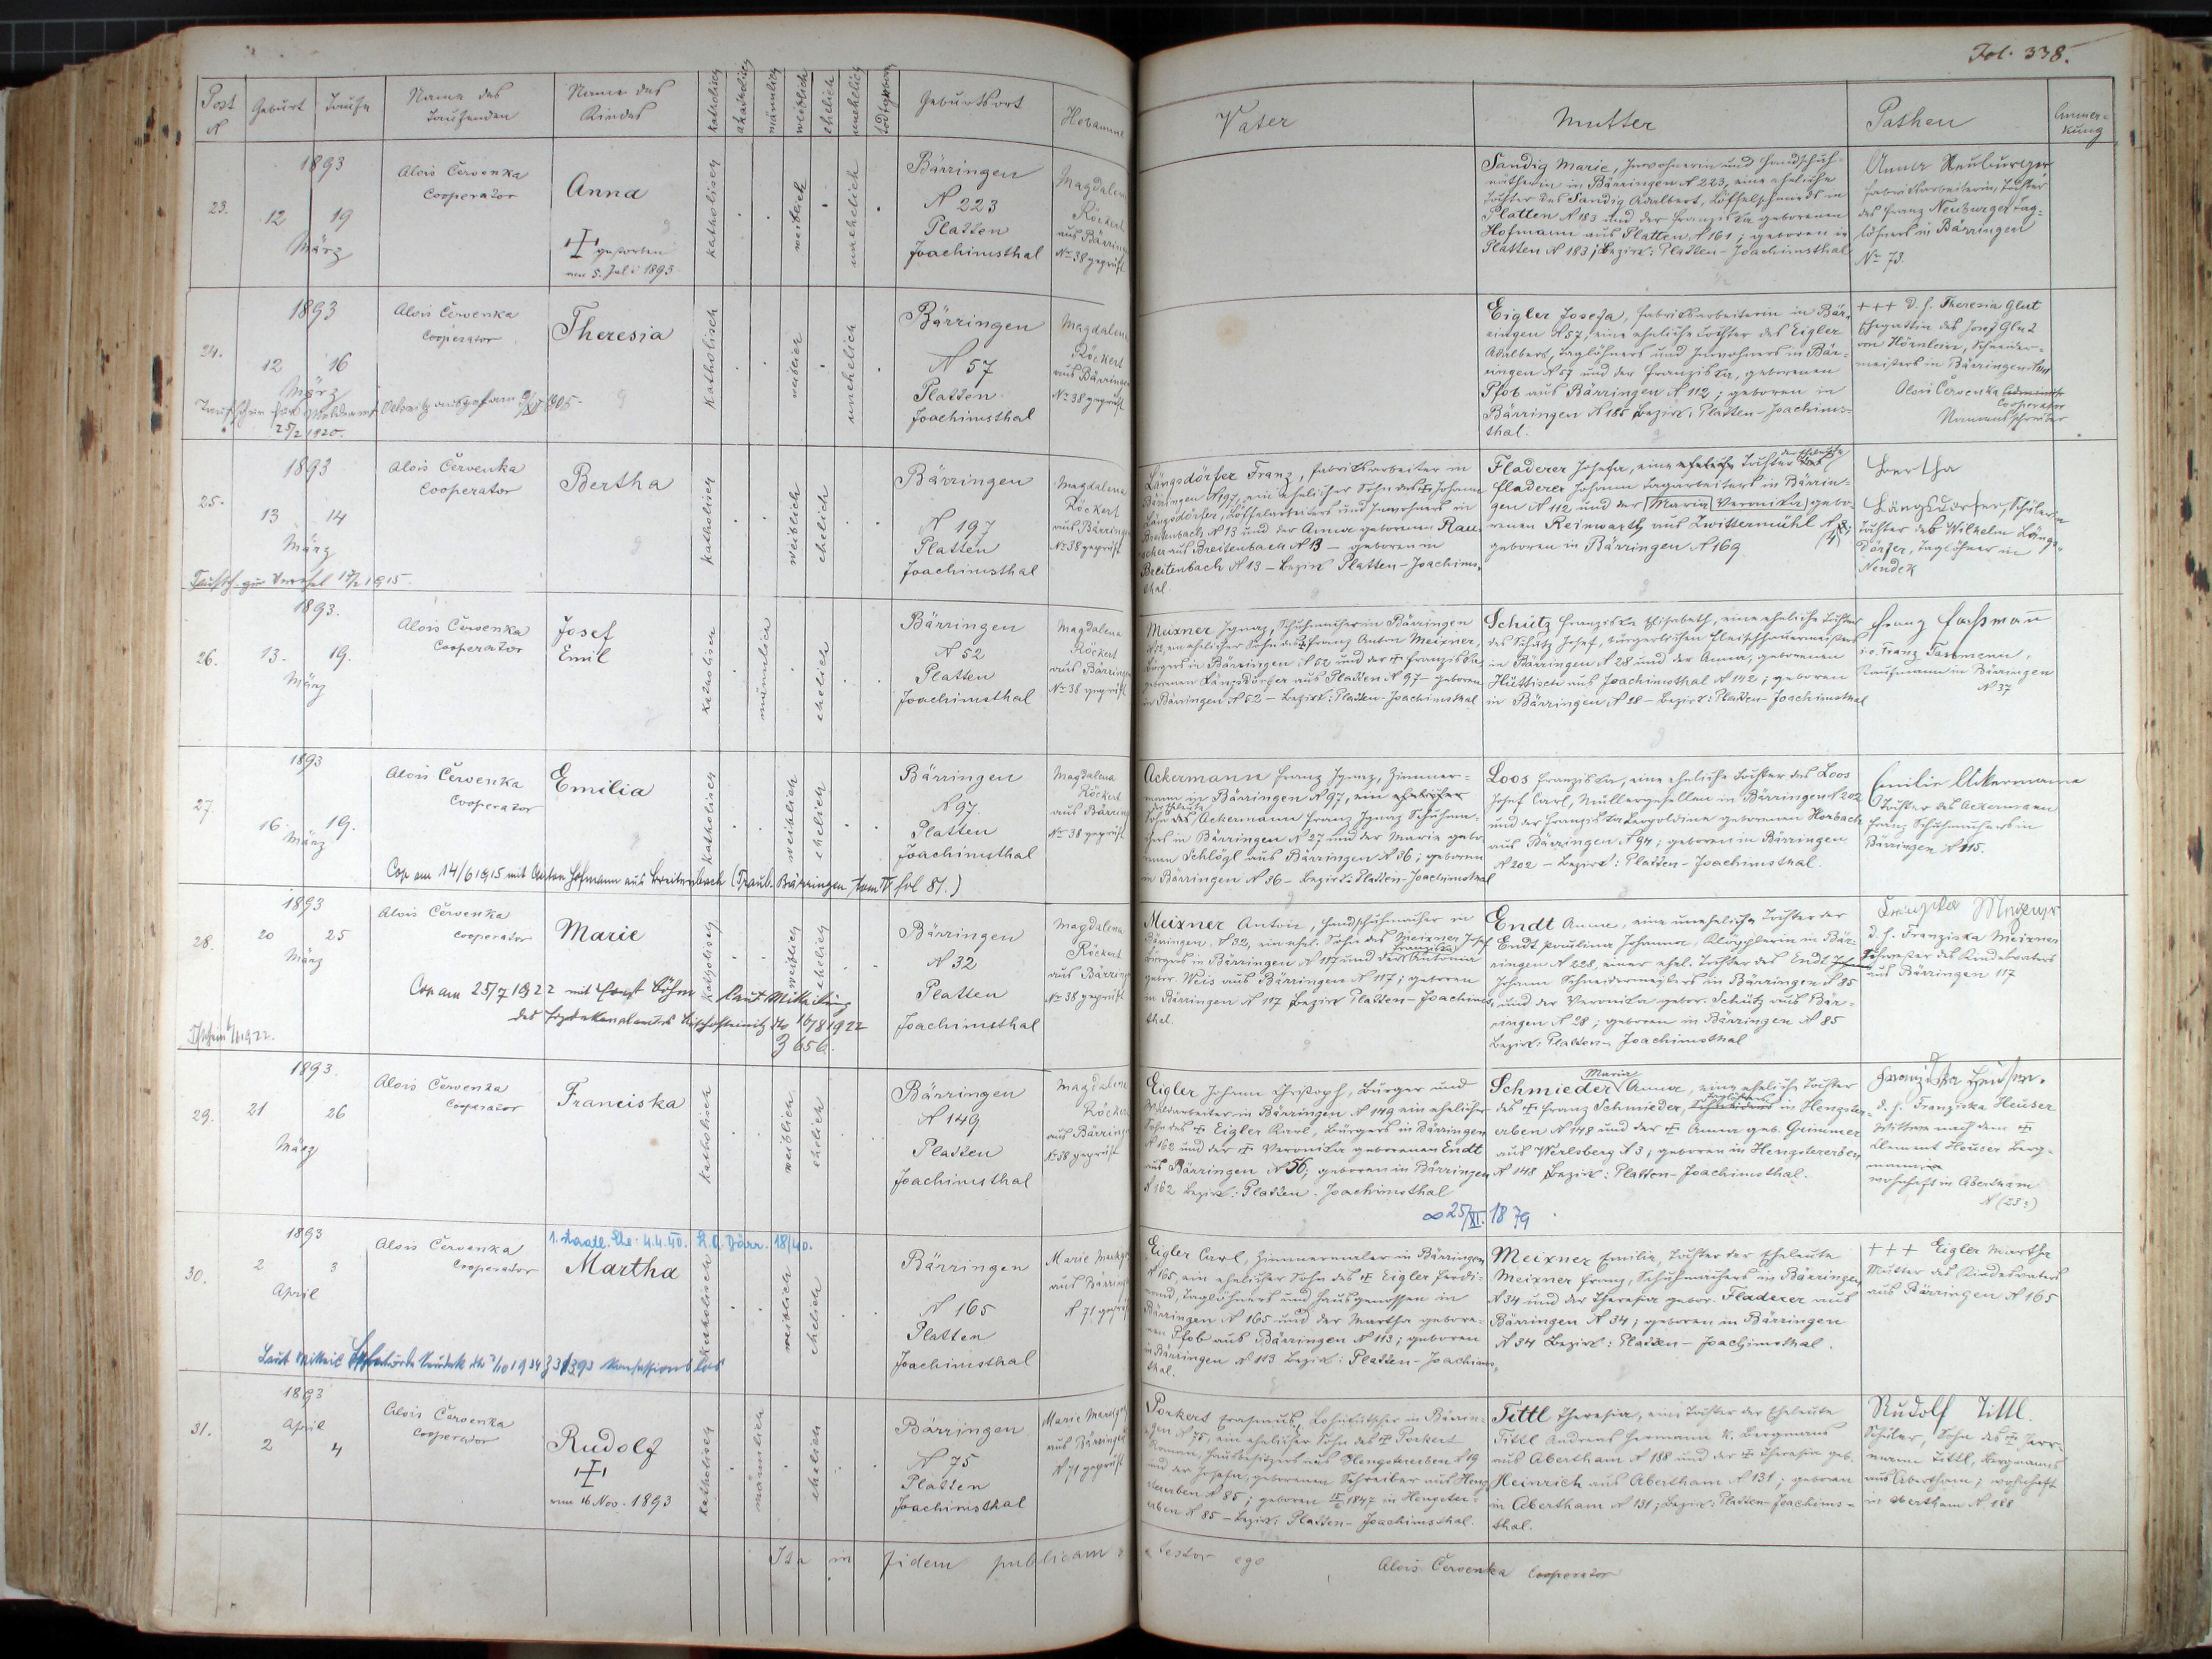 Fol. 338.
Post N
Geburt
Taufe
Name des Taufenden
Name des Kindes
katholisch
akatholisch
männlich
weiblich
ehelich
unehelich
todtgeboren
Geburtsort
Hebamme
Vater
Mutter
Pathen
Anmerkung
23.
1893
12 19
März
Alois Červenka
Cooperator
Anna
gestorben
am 5. Juli 1893
katholisch
weiblich
unehelich
Bärringen
N 223
Platten
Joachimsthal
Magdalena
Röckert
aus Bärringen
No 38 geprüft
Sandig Marie, Inwohnerin und Handschuh-
nätherin in Bärringen N 223, eine eheliche
Tochter des Sandig Adalbert, Löffelschmieds in
Platten N 183 und der Franziska geborenen
Hofmann aus Platten N 161; geboren in
Platten N 183; Bezirk: Platten-Joachimsthal
Anna Neuburger
Fabriksarbeiterin, Tochter
des Franz Neuburger Tag-
löhners in Bärringen
No 73.
24.
1893
12 16
März
Alois Červenka
Cooperator
Theresia
katholisch
weiblich
unehelich
Bärringen
N 57
Platten
Joachimsthal
Magdalena
Röckert
aus Bärringen
No 38 geprüft
25/2 1920.
Eigler Josefa, Fabriksarbeiterin in Bär-
ringen N 57, eine eheliche Tochter des Eigler
Adalbert, Taglöhners und Inwohners in Bär-
ringen N 57 und der Franziska, geborenen
Pfob aus Bärringen N 112; geboren in
Bärringen N 185 Bezirk: Platten-Joachims-
thal.
+++ d. h. Theresia Glut
Ehegattin des Josef Glut
von Hörnlein, Schneider-
meisters in Bärringen
Alois Červenka
Cooperator
Namensschreiber
25.
1893
13 14
März
Alois Červenka
Cooperator
Bertha
katholisch
weiblich
ehelich
Bärringen
N 197
Platten
Joachimsthal
Magdalena
Röckert
aus Bärringen
No 38 geprüft
Längsdörfer Franz, Fabriksarbeiter in
Bärringen N 197, ein ehelicher Sohn des + Johann
Längsdörfer, Löffelarbeiters und Inwohners in
Breitenbach N 13 und der Anna geborenen Rau-
scher aus Breitenbach N 13 - geboren in
Breitenbach N 13 - Bezirk Platten-Joachims-
thal.
Fladerer Josefa, eine eheliche Tochter
Fladerer Johann Tagarbeiters in Bärrin-
gen N 112 und der Maria Veronika gebo-
renen Reinwarth aus Zwittermühl N 8;
geboren in Bärringen N 169
Bertha
Längsdörfer, Schülerin
Tochter des Wilhelm Längs-
dörfer, Taglöhner in
Neudek
26.
1893.
13. 19.
März
Alois Červenka
Cooperator
Josef
Emil
katholisch
männlich
ehelich
Bärringen
N 52
Platten
Joachimsthal
Magdalena
Röckert
aus Bärringen
No 38 geprüft
Meixner Ignaz, Schuhmacher in Bärringen
N 52, ein ehelicher Sohn des + Franz Anton Meixner,
Bürgers in Bärringen N 52 und der + Franziska
geborenen Längsdörfer aus Platten N 97 - geboren
in Bärringen N 52 - Bezirk: Platten-Joachimsthal
Schütz Franziska Elisabeth, eine eheliche Tochter
des Schütz Josef, bürgerlichen Fleischhauermeisters
in Bärringen N 28 und der Anna, geborenen
Hüttisch aus Joachimsthal N 142; geboren
in Bärringen N 28 - Bezirk: Platten-Joachimsthal
Franz Fassmann
Franz Fassmann,
Kaufmann in Bärringen
N 37
27.
1893
16. 19.
März
Alois Červenka
Cooperator
Emilia
katholisch
weiblich
ehelich
Bärringen
N 97
Platten
Joachimsthal
Magdalena
Röckert
aus Bärringen
No 38 geprüft
Cop am 14/6 1915 mit Anton Hofmann aus Breitenbach (Traub. Bärringen tom IV fol 81.)
Ackermann Franz Ignaz, Zimmer-
mann in Bärringen N 97, ein ehelicher
Sohn der Eheleute Ackermann Franz Ignaz Schuhma-
chers in Bärringen N 27 und der Maria gebo-
renen Schlögl aus Bärringen N 36; geboren
in Bärringen N 36 - Bezirk: Platten-Joachimsthal
Loos Franziska, eine eheliche Tochter des Loos
Josef Carl, Müllergesellen in Bärringen N 202
und der Franziska Leopoldine geborenen Horbach
aus Bärringen N 94; geboren in Bärringen
N 202 - Bezirk: Platten-Joachimsthal.
Emilie Ackermann
Tochter des Ackermann
Franz Schuhmachers in
Bärringen N 115.
28.
1893
20 25
März
Alois Červenka
Cooperator
Marie
katholisch
weiblich
ehelich
Bärringen
N 32
Platten
Joachimsthal
Magdalena
Röckert
aus Bärringen
No 38 geprüft
Cop am 25/7 1922 mit Ernst Böhm laut Mitteilung
des Erzdekanalamtes Bischofteinitz dto 16/8 1922
Z 656.
Meixner Anton, Handschuhmacher in
Bärringen, N 32, ein ehel. Sohn des Meixner Josef
Bürgers in Bärringen N 117 und der Franziska Antonia
gebor. Weis aus Bärringen N 117; geboren
in Bärringen N 117 Bezirk Platten-Joachims-
thal.
Endt Anna, eine uneheliche Tochter der
Endt Paulina Johanna, Klöpplerin in Bär-
ringen N 228, einer ehel. Tochter des Endt
Johann Schneidermeisters in Bärringen N 85
und der Veronika gebor. Schütz aus Bär-
ringen N 28; geboren in Bärringen N 85
Bezirk: Platten-Joachimsthal
d. h. Franziska Meixner
Schwester des Kindesvaters
aus Bärringen 117
29.
1893.
21 26
März
Alois Červenka
Cooperator
Franciska
katholisch
weiblich
ehelich
Bärringen
N 149
Platten
Joachimsthal
Magdalena
Röckert
aus Bärringen
No 38 geprüft
Eigler Johann Christoph, Bürger und
Waldarbeiter in Bärringen N 149 ein ehelicher
Sohn des + Eigler Karl, Bürgers in Bärringen
N 162 und der + Veronika geborenen Endt
aus Bärringen N 56; geboren in Bärringen
N 162 Bezirk: Platten-Joachimsthal
∞ 25/XI. 1879
Schmieder Maria Anna, eine eheliche Tochter
des + Franz Schmieder, Taglöhners in Hengster-
erben N 148 und der + Anna geb. Grimmer
aus Werlsberg N 3; geboren in Hengstererben
N 148 Bezirk: Platten-Joachimsthal.
Franziska Heuser.
d. h. Franziska Heuser
Wittwe nach dem +
Clement Heuser Berg-
mann
wohnhaft in Abertham
30.
1893
2 3
April
Alois Červenka
Cooperator
1. staatl. Ehe: 4.4.40. St. A. Bärr. 18/40.
Martha
katholisch
weiblich
ehelich
Bärringen
N 165
Platten
Joachimsthal
aus Bärringen
N 71 geprüft
Eigler Carl, Zimmermaler in Bärringen
N 165, ein ehelicher Sohn des + Eigler Ferdi-
nand, Taglöhners und Hausgenossen in
Bärringen N 165 und der Martha gebore-
nen Pfob aus Bärringen N 113; geboren
in Bärringen N 113 Bezirk: Platten-Joachims-
thal.
Meixner Emilia, Tochter der Eheleute
Meixner Franz, Schuhmachers in Bärringen
N 34 und der Theresia gebor. Fladerer aus
Bärringen N 34; geboren in Bärringen
N 34 Bezirk: Platten-Joachimsthal.
+++ Eigler Martha
Mutter des Kindesvaters
aus Bärringen N 165
31.
1893
April
2 4
Alois Červenka
Cooperator
Rudolf
am 16 Nov. 1893
katholisch
männlich
ehelich
Bärringen
N 75
Platten
Joachimsthal
aus Bärringen
N 71 geprüft
Porkert Erasmus, Lohnkutscher in Bärrin-
gen N 75, ein ehelicher Sohn des + Porkert
Roman, Hausbesitzers aus Hengstererben N 19
und der Josefa, geborenen Schreiber aus Heng-
stererben N 85; geboren 1847 in Hengster-
erben N 85 - Bezirk: Platten-Joachimsthal.
Tittl Theresia, eine Tochter der Eheleute
Tittl Andreas Hermann k. Bergmanns
aus Abertham N 188 und der + Theresia geb.
Heinrich aus Abertham N 131; geboren
in Abertham N 131; Bezirk: Platten-Joachims-
thal.
Rudolf Tittl.
Schüler, Sohn des + Her-
mann Tittl, Bergmanns
aus Abertham; wohnhaft
in Abertham N 188
Ita in fidem publicam
testor ego
Alois Červenka Cooperator